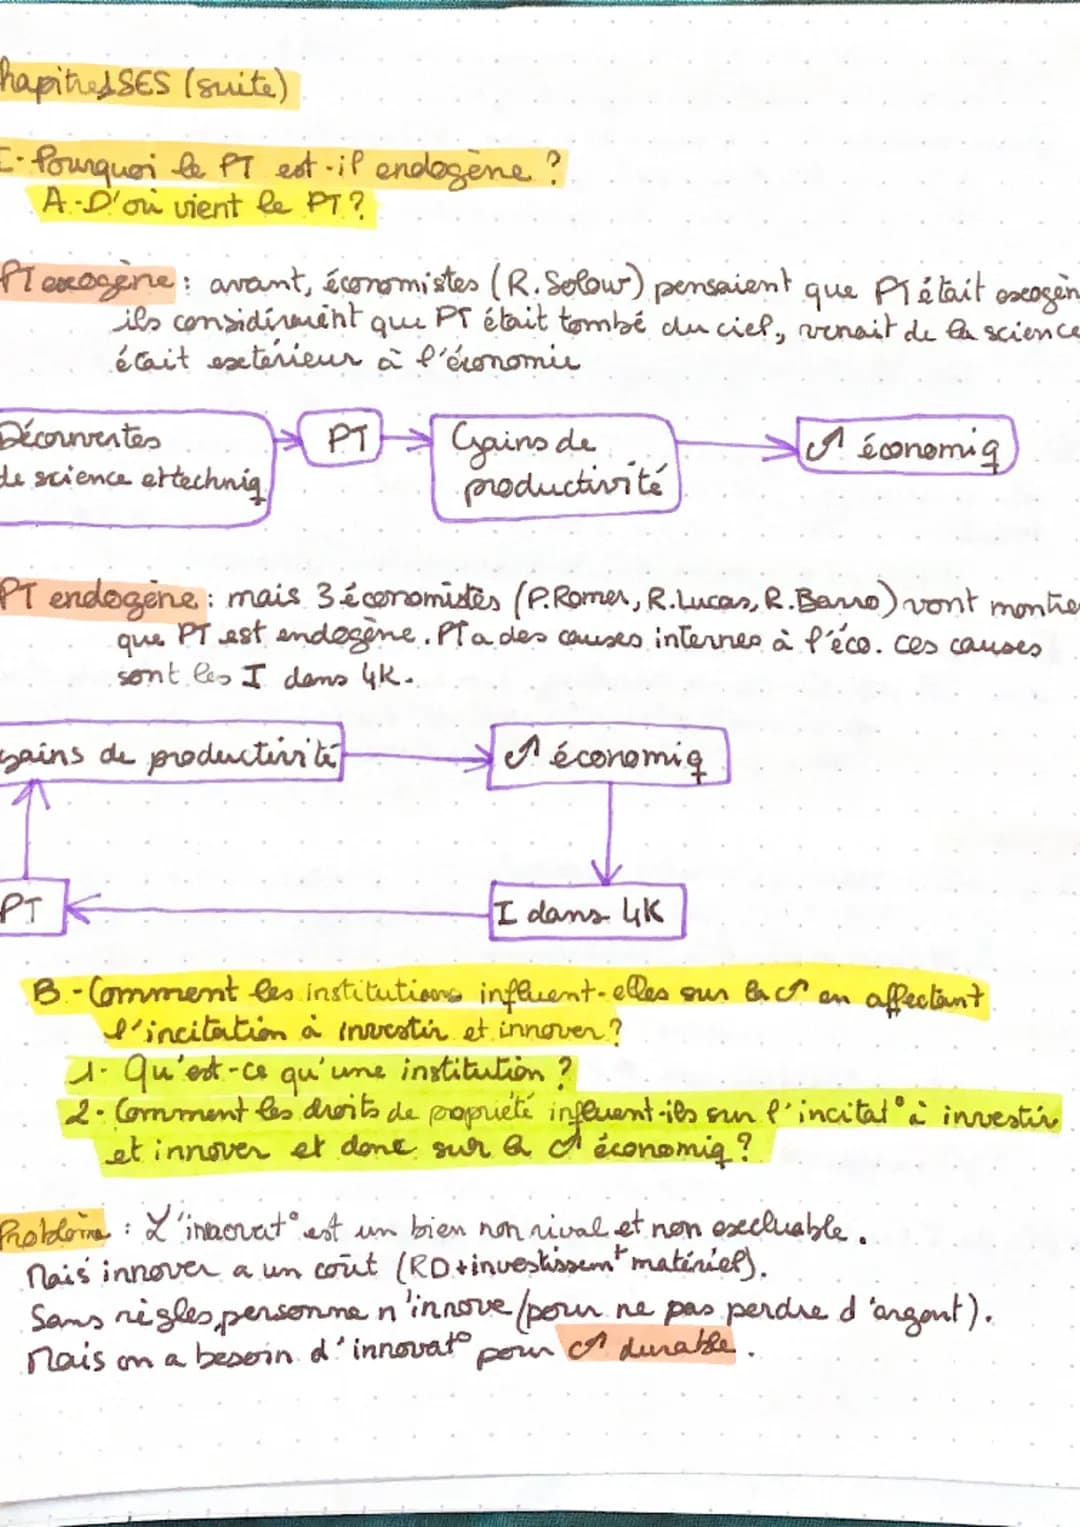 hapitre1 SES (suite)
I- Pourquoi le PT est-il endogène ?
A-D'où vient le PT ?
PT exogène : avant, économistes (R.Solow) pensaient que PT était exogèn
ils considéraient que PT était tombé du ciel, venait de la science
était extérieur à l'économie
Découvertes
de science et techniq
PT
Gains de
productivité
↗ économiq
PT endogène : mais 3 économistes (P.Romer, R.Lucas, R.Barro) vont montre
que PT est endogène. PT a des causes internes à l'éco. ces causes
sont les I dans 4K.
gains de productivité
↗ économiq
PT
I dans 4K
B-Comment les institutions influent-elles sur la c↗ en affectant
l'incitation à investir et innover ?
1- Qu'est-ce qu'une institution ?
2- Comment les droits de propriété influent-ils sur l'incitat° à investir
et innover et donc sur la c↗ économiq ?
Problème : L'innovat° est un bien non rival et non excluable.
Mais innover a un coût (RD+investissemt matériel).
Sans règles, personne n'innove (pour ne pas perdre d'argent).
Mais on a besoin d'innovat° pour c↗ durable.